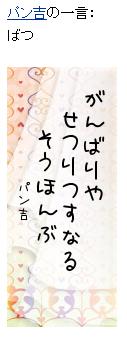 パン吉の一言:
ばつ
がんばりや
せつりつすなる
そうほんぶ
パン吉